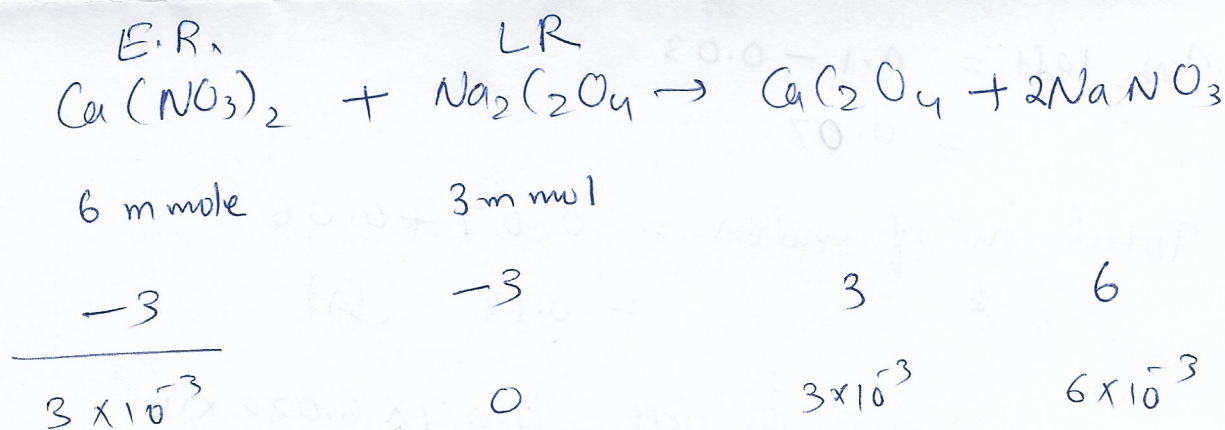 E.R. LR
Ca(NO3)2 + Na2C2O4 → CaC2O4 + 2NaNO3
6 mmole 3 m mol
-3 -3 3 6
3 × 10⁻³ 0 3×10⁻³ 6×10⁻³